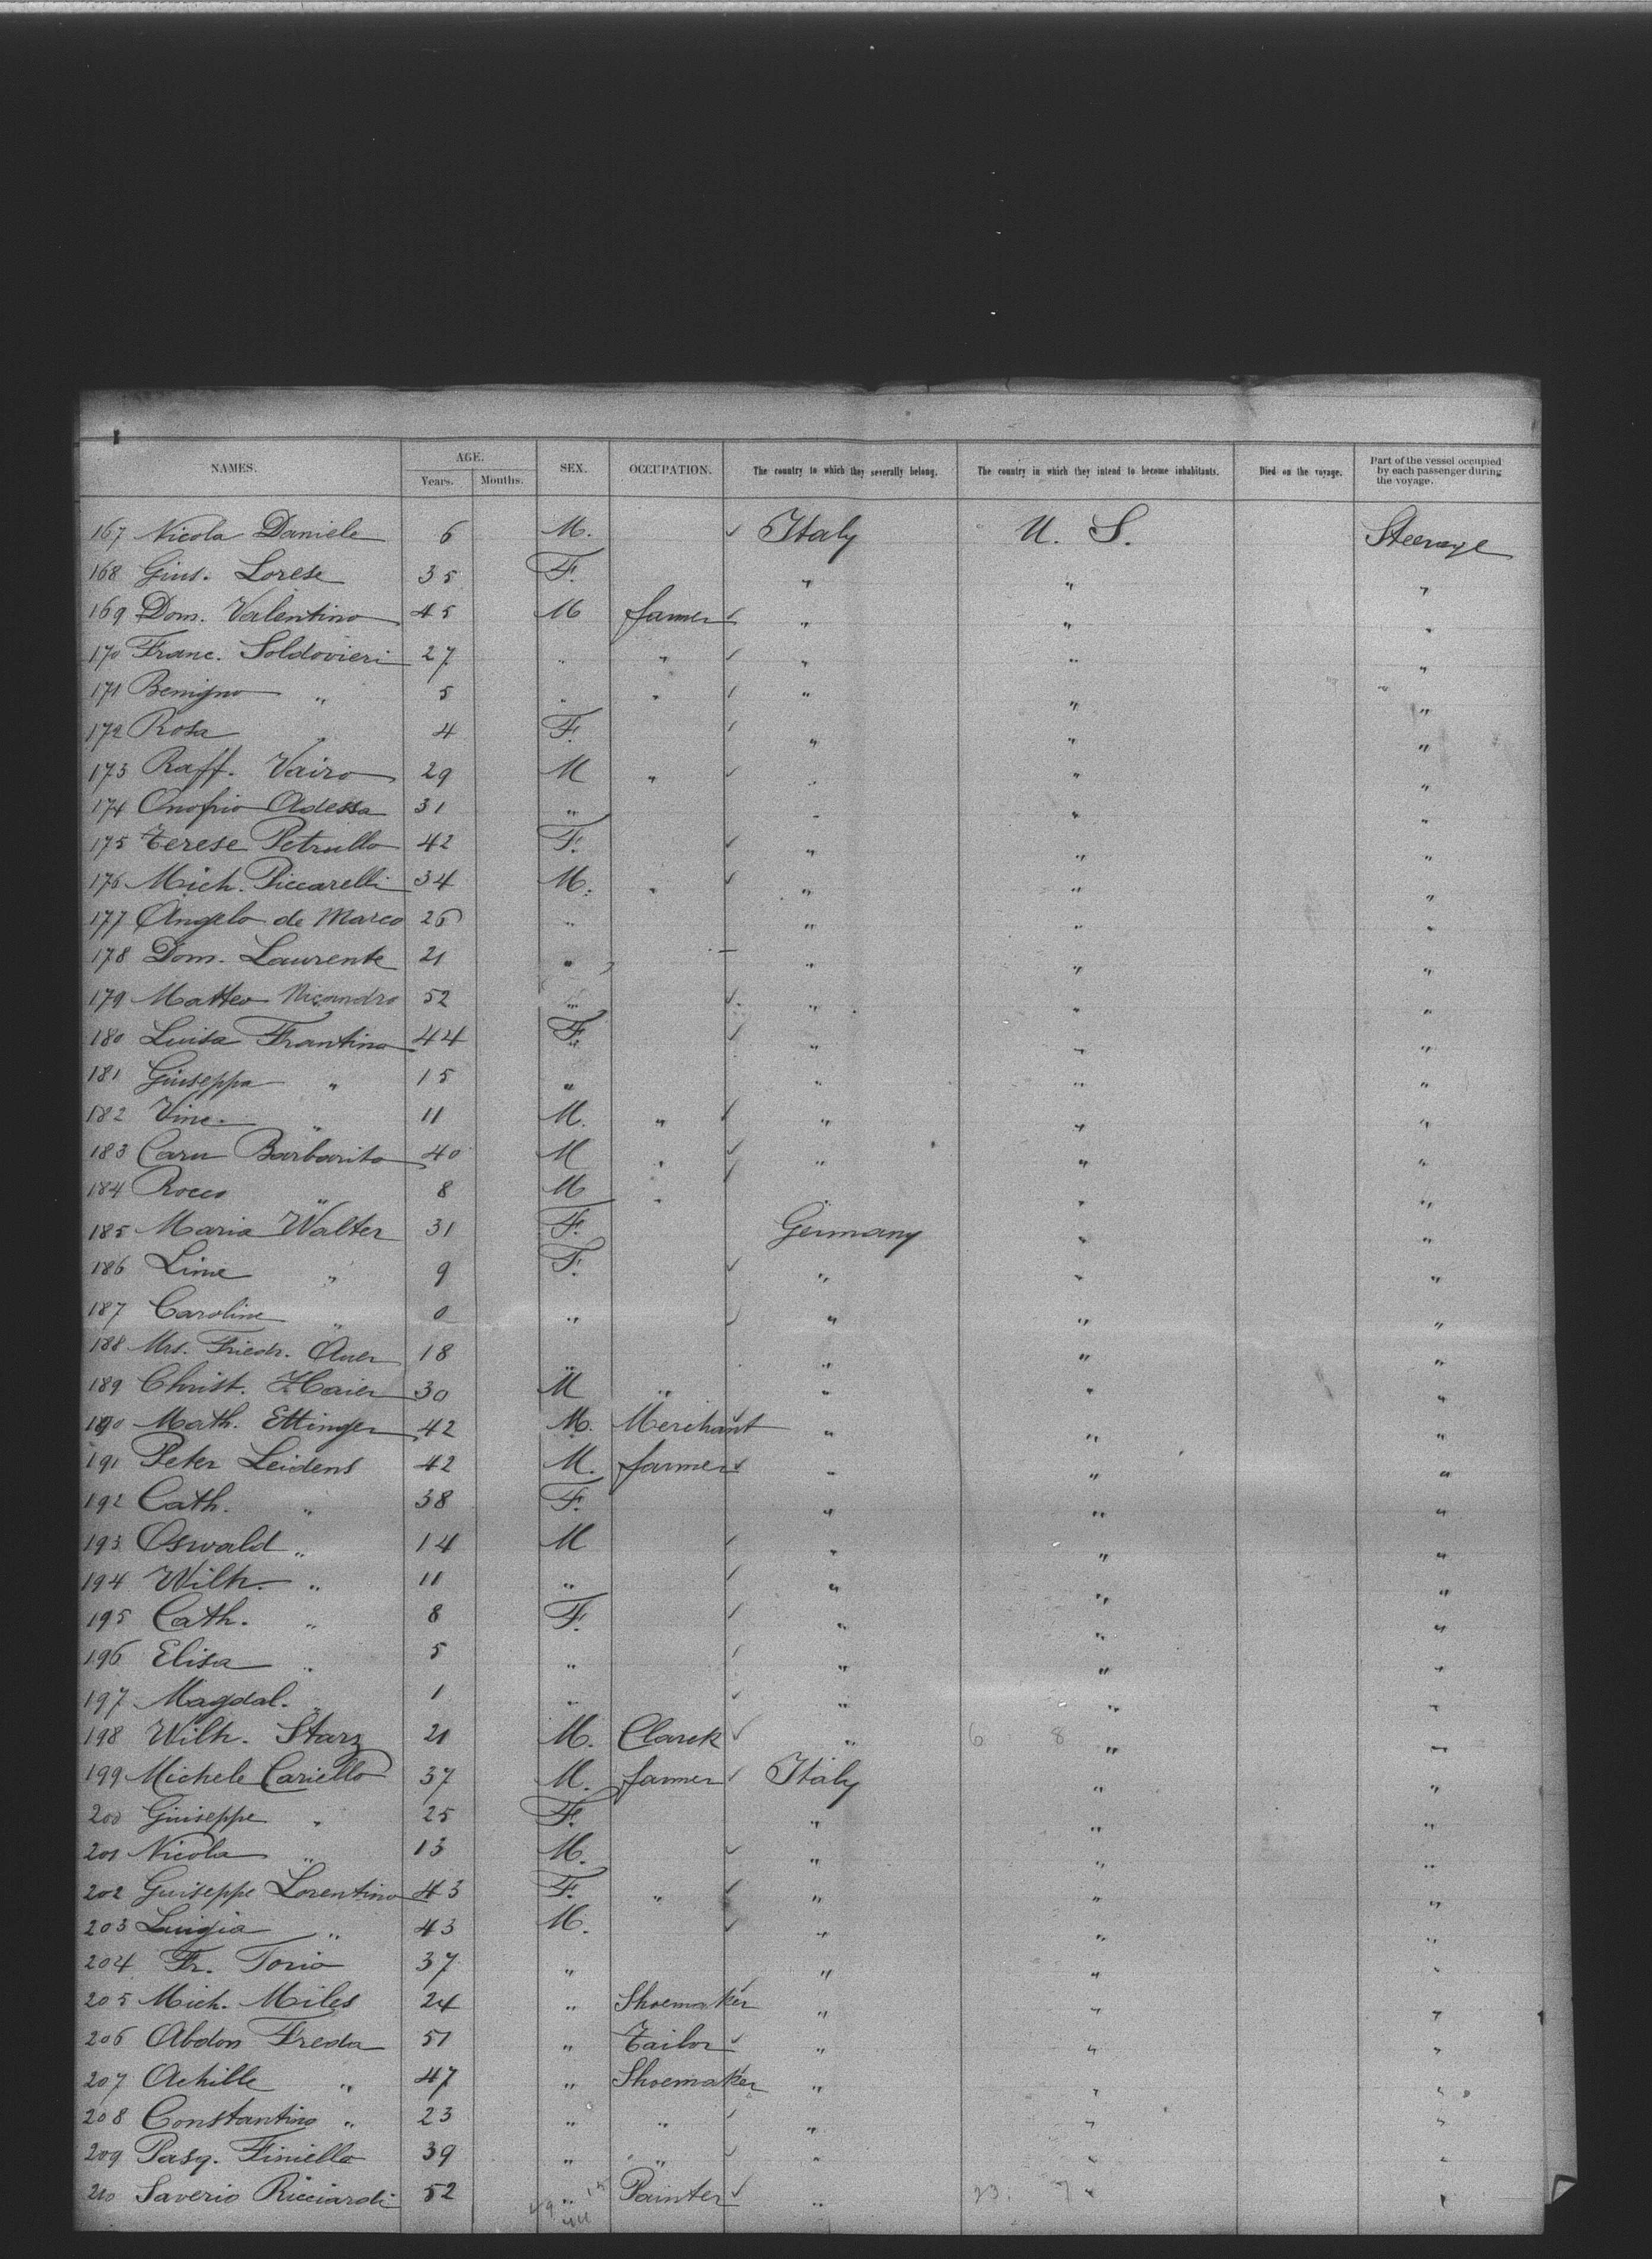 NAMES. AGE. Years. Months. SEX. OCCUPATION. The country to which they severally belong. The country in which they intend to become inhabitants. Died on the voyage. Part of the vessel occupied by each passenger during the voyage.
167 Nicola Daniele 6 M. ✓ Italy U. S. Steerage
168 Gius. Lorese 35 F. " " "
169 Dom. Valentino 45 M farmer ✓ " " "
170 Franc. Soldovieri 27 " " ✓ " " "
171 Benigno " 5 " " ✓ " " "
172 Rosa " 4 F. ✓ " " "
173 Raff. Vairo 29 M " ✓ " " "
174 Onofrio Adessa 31 " " " "
175 Terese Petrullo 42 F. ✓ " " "
176 Mich. Piccarelli 34 M. " ✓ " " "
177 Angelo de Marco 26 " " " "
178 Dom. Laurente 21 " " " "
179 Matteo Nicandro 52 " ✓ " " "
180 Luisa Frantino 44 F. ✓ " " "
181 Giuseppa " 15 " " " "
182 Vinc. " 11 M. " ✓ " " "
183 Caru Barbarito 40 M " ✓ " " "
184 Rocco " 8 M " ✓ " " "
185 Maria Walter 31 F. Germany " "
186 Line " 9 F. ✓ " " "
187 Caroline " 0 " ✓ " " "
188 Mrs. Friedr. Auer 18 " " " "
189 Christ. Haier 30 M " " " "
190 Math. Ettinger 42 M. Merchant ✓ " " "
191 Peter Leidens 42 M. farmer ✓ " " "
192 Cath. " 38 F. " " "
193 Oswald " 14 M ✓ " " "
194 Wilh. " 11 " ✓ " " "
195 Cath. " 8 F. ✓ " " "
196 Elisa " 5 " ✓ " " "
197 Magdal. " 1 " ✓ " " "
198 Wilh. Starz 21 M. Clarek ✓ " 6 8 " "
199 Michele Cariello 37 M. farmer ✓ Italy " "
200 Giuseppe " 25 F. " " "
201 Nicola " 13 M. ✓ " " "
202 Guiseppe Lorentino 43 F. " ✓ " " "
203 Luigia " 43 M. ✓ " " "
204 Fr. Torio 37 " " " "
205 Mich. Miles 24 " Shoemaker ✓ " " "
206 Abdon Freda 51 " Tailor ✓ " " "
207 Achille " 47 " Shoemaker ✓ " " "
208 Constantino " 23 " " ✓ " " "
209 Pasq. Finiello 39 " " ✓ " " "
210 Saverio Ricciardi 52 " Painter ✓ " 23. 7 " "